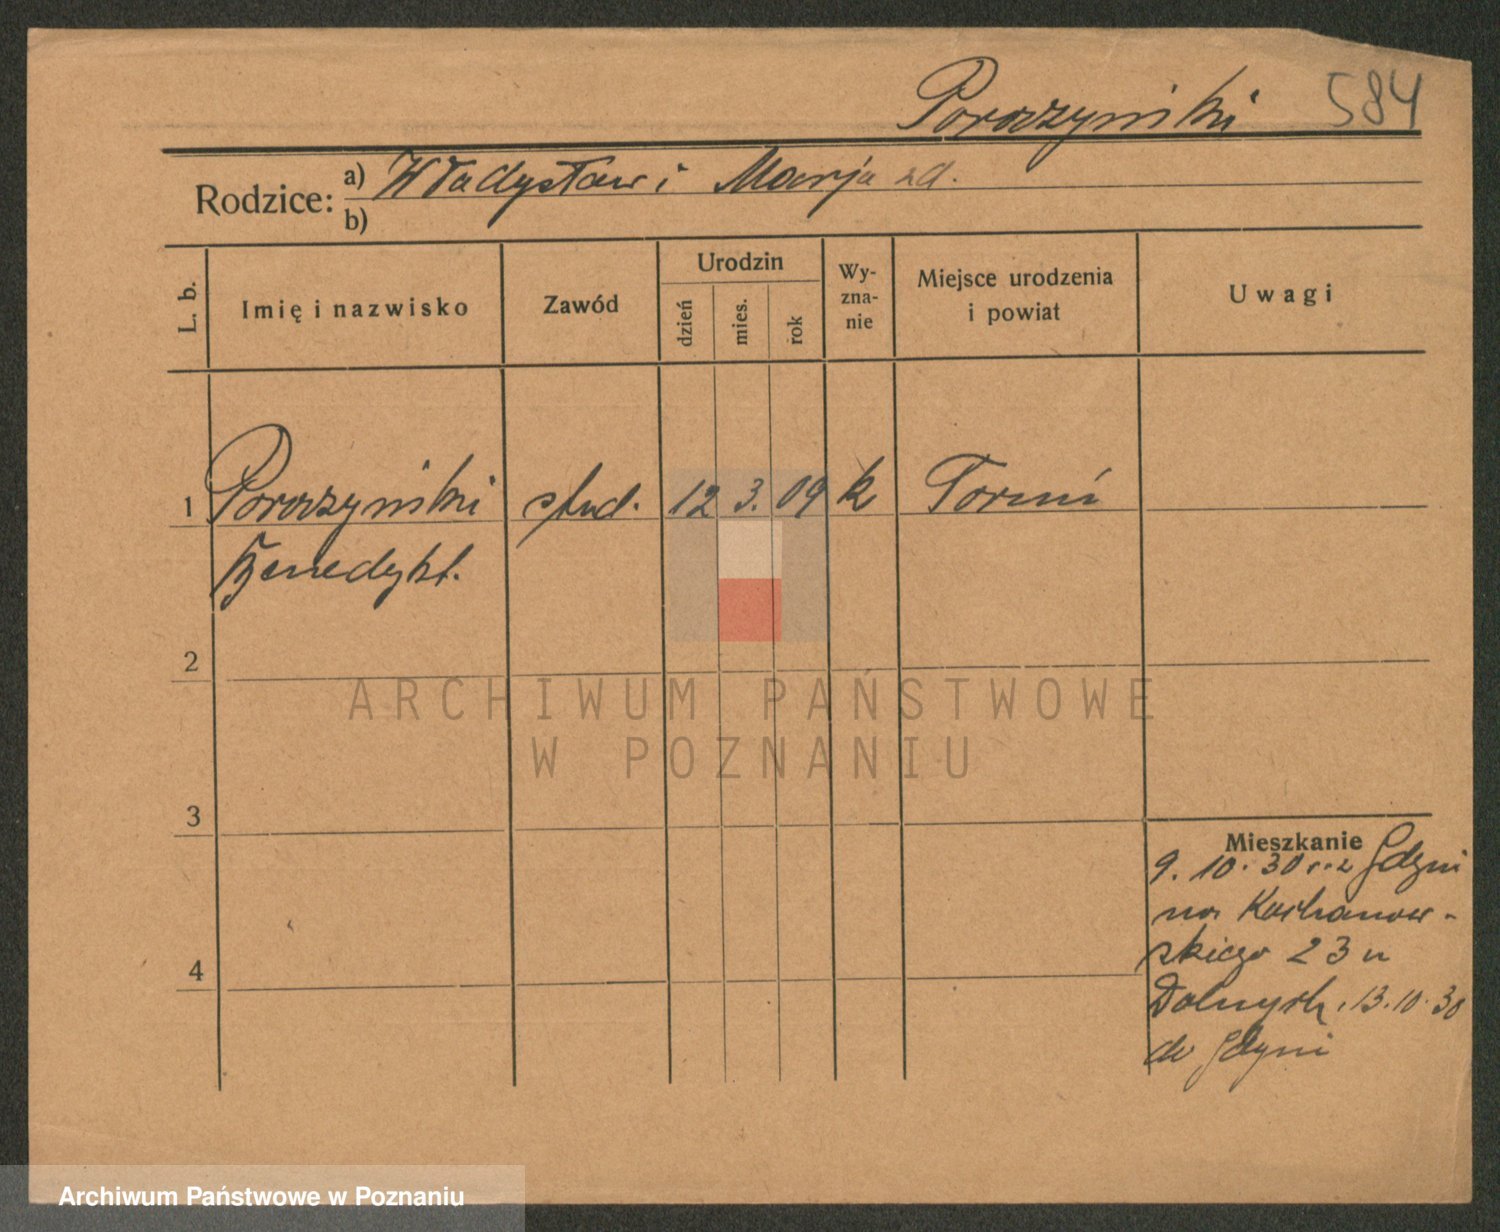 Poraszyński 584
Rodzice: a) Władysław i Marja zd.
b)
L. b. Imię i nazwisko Zawód Urodzin dzień mies. rok Wyznanie Miejsce urodzenia i powiat Uwagi
1 Poraszyński stud. 12 3. 09 k Toruń
Benedykt.
2
ARCHIWUM PAŃSTWOWE
W POZNANIU
3
Mieszkanie
9. 10. 30 r. z Gdyni
na Kochanow-
skiego 23 u
Dolnych, 13.10.30
do Gdyni
4
Archiwum Państwowe w Poznaniu